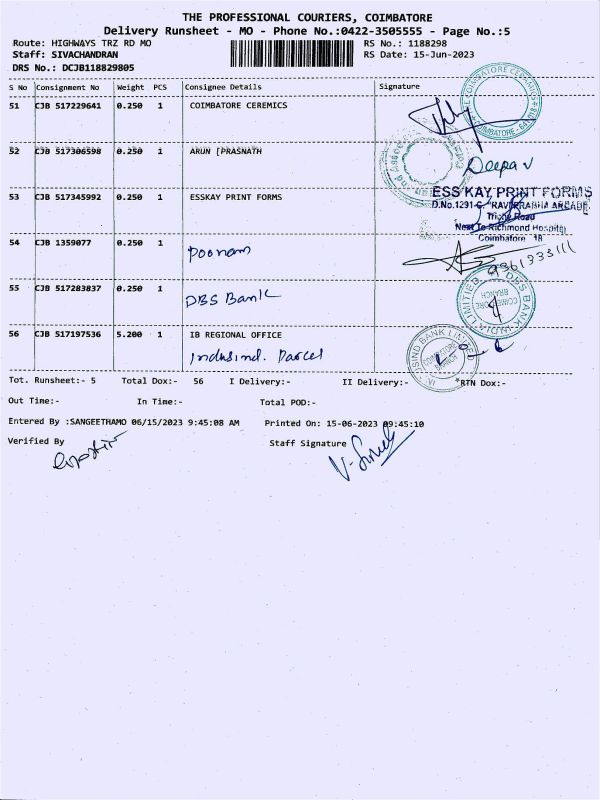 THE PROFESSIONAL COURIERS, COIMBATORE
Delivery Runsheet - MO - Phone No.:0422-3505555 - Page No.:5
Route: HIGHWAYS TRZ RD MO RS No.: 1188298
Staff: SIVACHANDRAN RS Date: 15-Jun-2023
DRS No.: DCJB118829805
S No Consignment No Weight PCS Consignee Details Signature
51 CJB 517229641 0.250 1 COIMBATORE CEREMICS
COIMBATORE CERAMICS
COIMBATORE
52 CJB 517306598 0.250 1 ARUN [PRASNATH
Deepa v
53 CJB 517345992 0.250 1 ESSKAY PRINT FORMS
ESS KAY, PRINT FORMS
D.No.1291
Trichy Road
Next To Richmond Hospital
Coimbatore 18
54 CJB 1359077 0.250 1
Poonam
55 CJB 517283837 0.250 1
DBS Bank
DBS BANK INDIA LIMITED
COIMBATORE BRANCH
56 CJB 517197536 5.200 1 IB REGIONAL OFFICE
Indusind. Parcel
INDUSIND BANK LIMITED
COIMBATORE
Tot. Runsheet:- 5 Total Dox:- 56 I Delivery:- II Delivery:- *RTN Dox:-
Out Time:- In Time:- Total POD:-
Entered By :SANGEETHAMO 06/15/2023 9:45:08 AM Printed On: 15-06-2023 09:45:10
Verified By Staff Signature